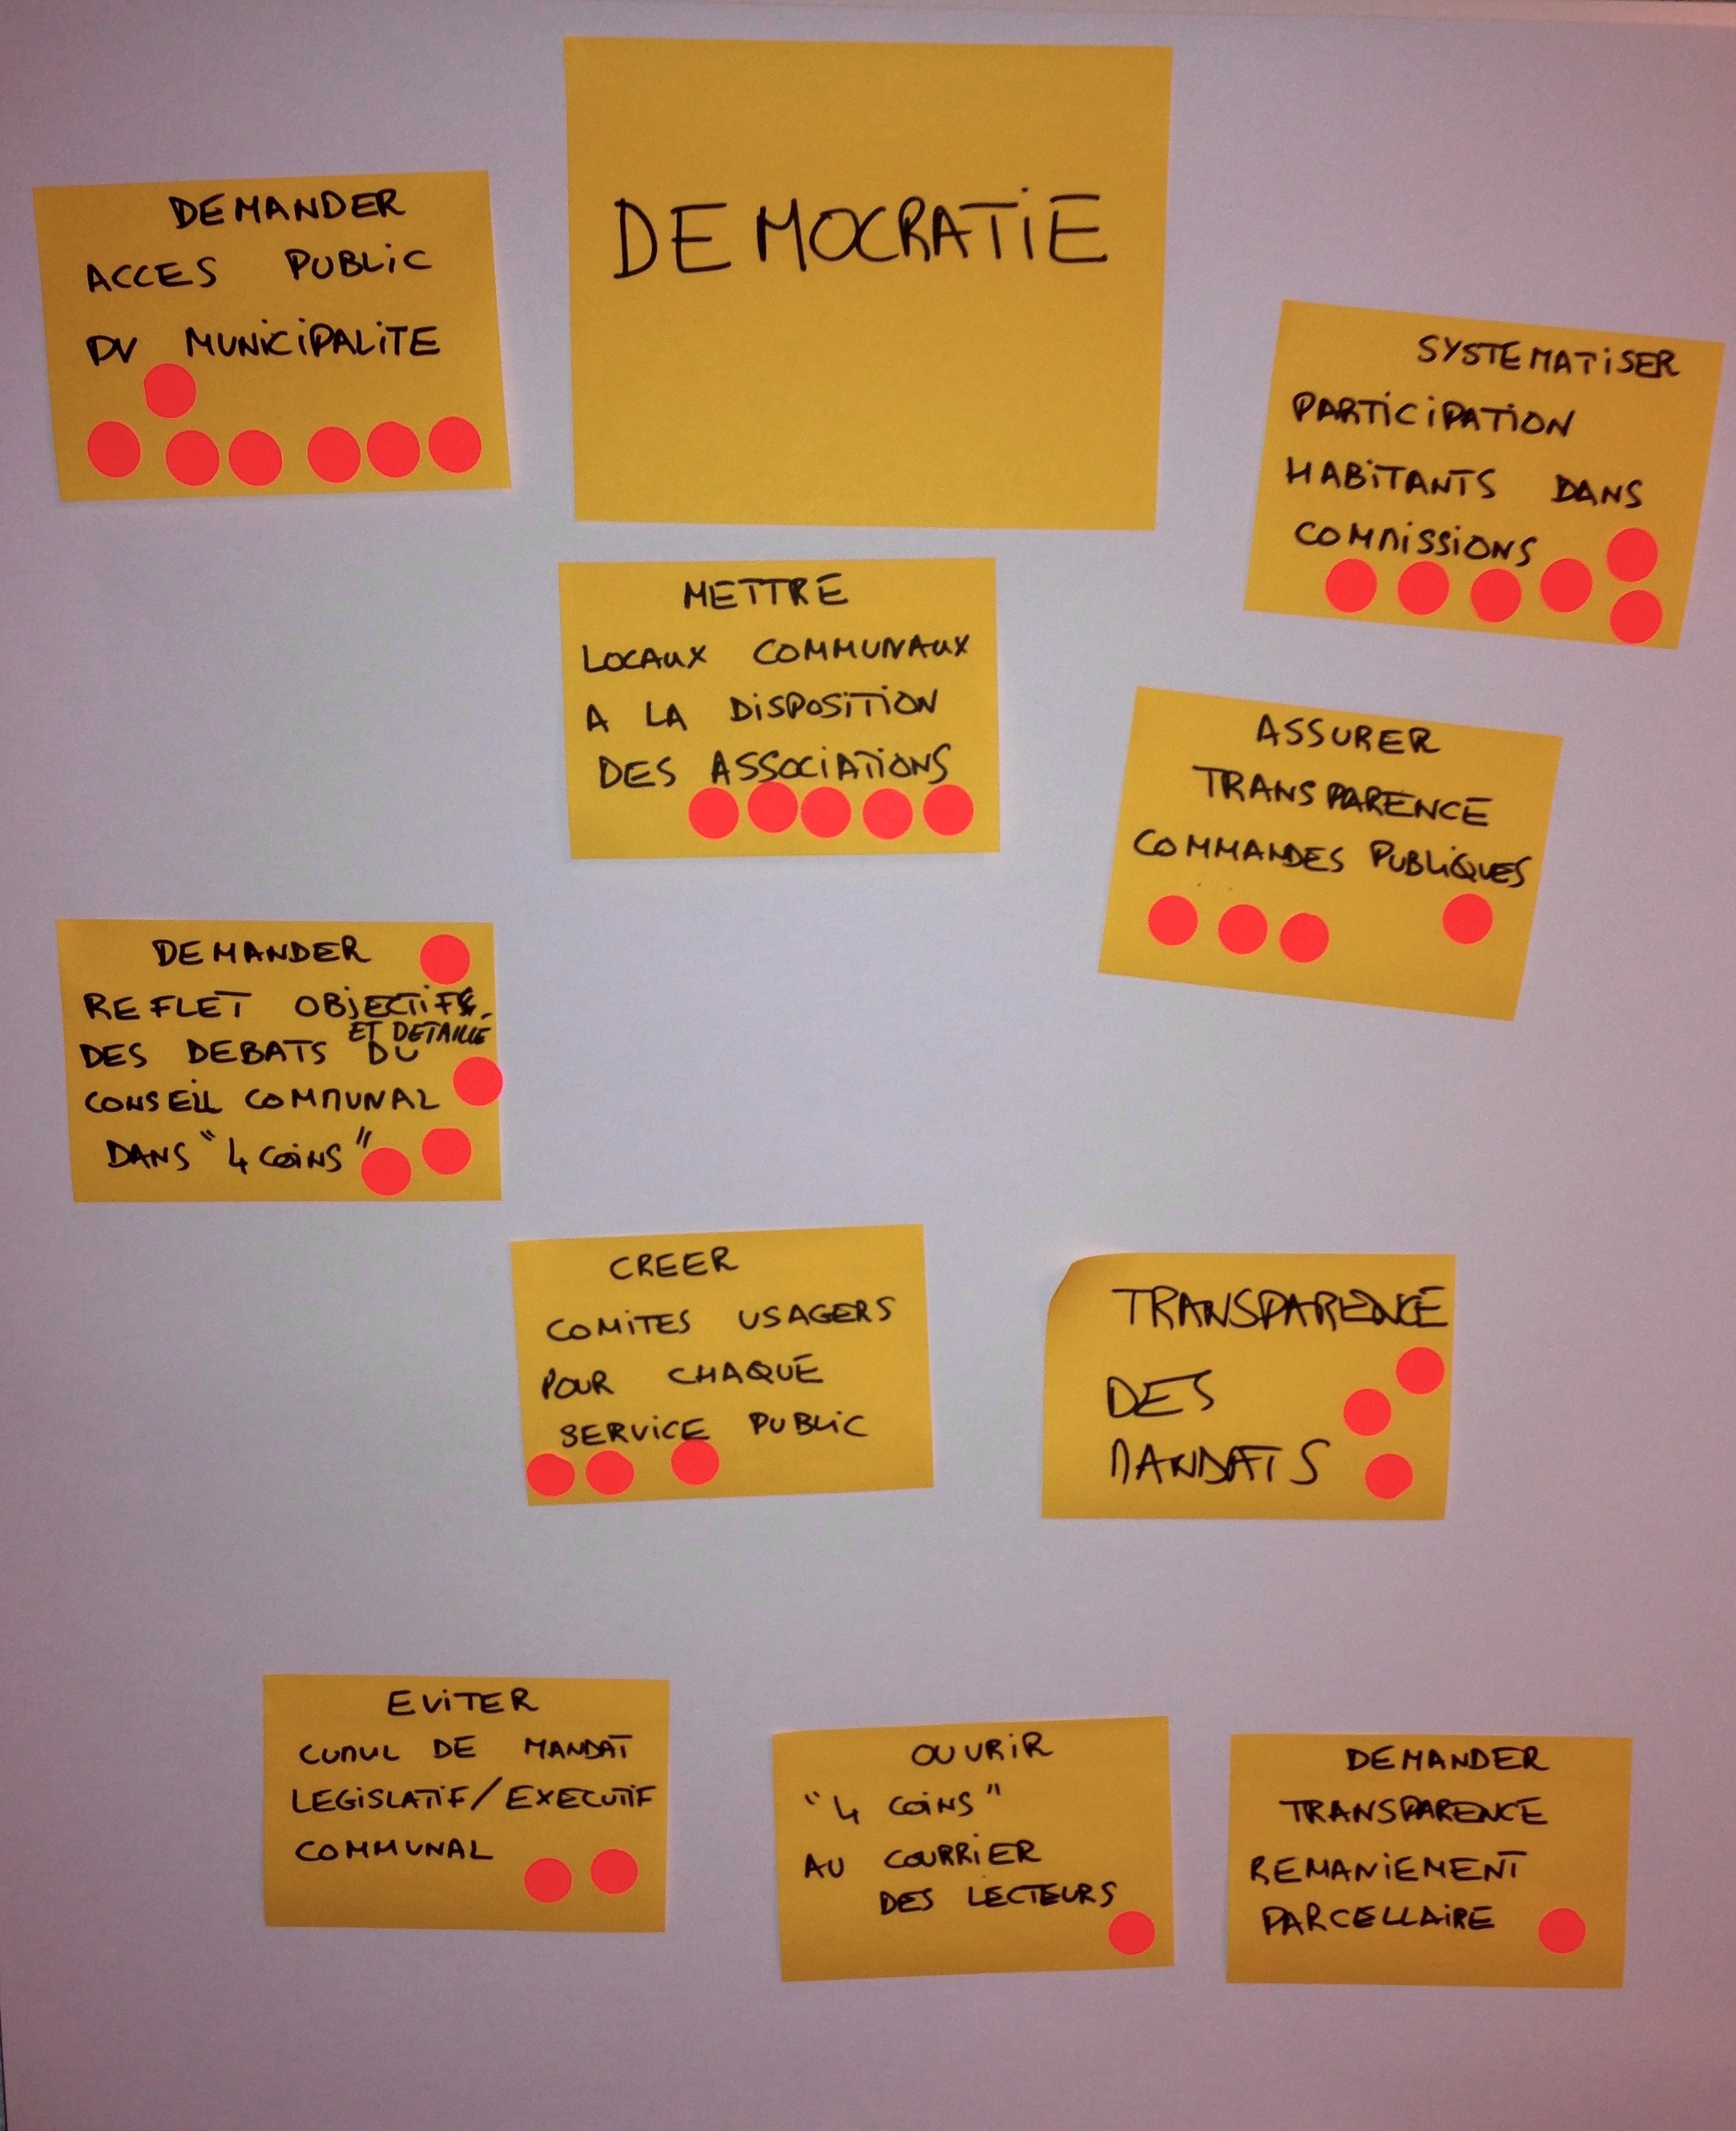 DEMOCRATIE
DEMANDER
ACCES PUBLIC
PV MUNICIPALITE
SYSTEMATISER
PARTICIPATION
HABITANTS DANS
COMMISSIONS
METTRE
LOCAUX COMMUNAUX
A LA DISPOSITION
DES ASSOCIATIONS
ASSURER
TRANSPARENCE
COMMANDES PUBLIQUES
DEMANDER
REFLET OBJECTIF
ET DETAILLE
DES DEBATS DU
CONSEIL COMMUNAL
DANS "4 COINS"
CREER
COMITES USAGERS
POUR CHAQUE
SERVICE PUBLIC
TRANSPARENCE
DES
MANDATS
EVITER
CUMUL DE MANDAT
LEGISLATIF/EXECUTIF
COMMUNAL
OUVRIR
"4 COINS"
AU COURRIER
DES LECTEURS
DEMANDER
TRANSPARENCE
REMANIEMENT
PARCELLAIRE